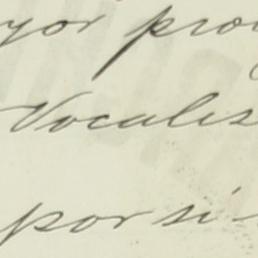 yor pro
Vocales
por si